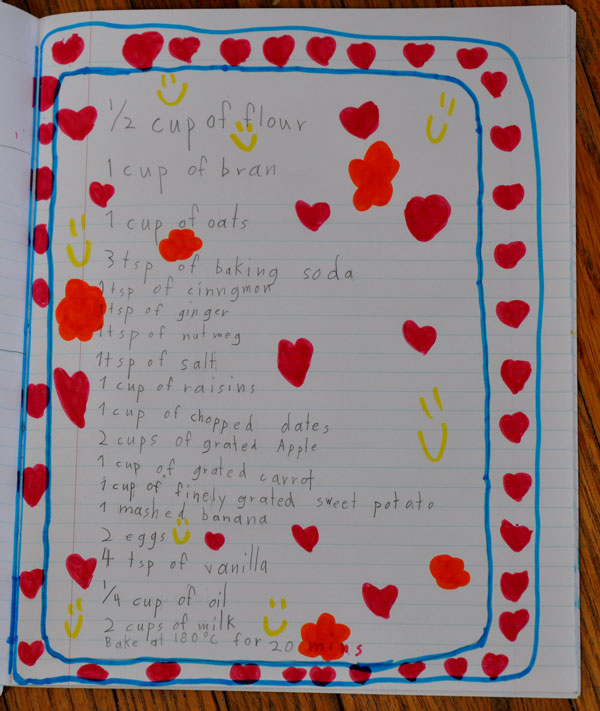 1/2 cup of flour
1 cup of bran
1 cup of oats
3 tsp of baking soda
1 tsp of cinngmon
1 tsp of ginger
1 tsp of nutmeg
1 tsp of salt
1 cup of raisins
1 cup of chopped dates
2 cups of grated Apple
1 cup of grated carrot
1 cup of finely grated sweet potato
1 mashed banana
2 eggs
4 tsp of vanilla
1/4 cup of oil
2 cups of milk
Bake at 180°C for 20 mins